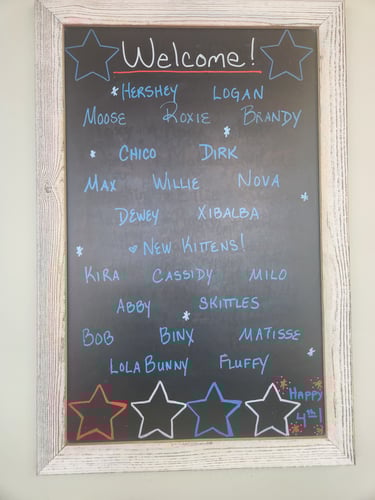 Welcome!
HERSHEY LOGAN
MOOSE ROXIE BRANDY
CHICO DIRK
MAX WILLIE NOVA
DEWEY XIBALBA
NEW KITTENS!
KIRA CASSIDY MILO
ABBY SKITTLES
BOB BINX MATISSE
LOLA BUNNY FLUFFY
HAPPY
4th!